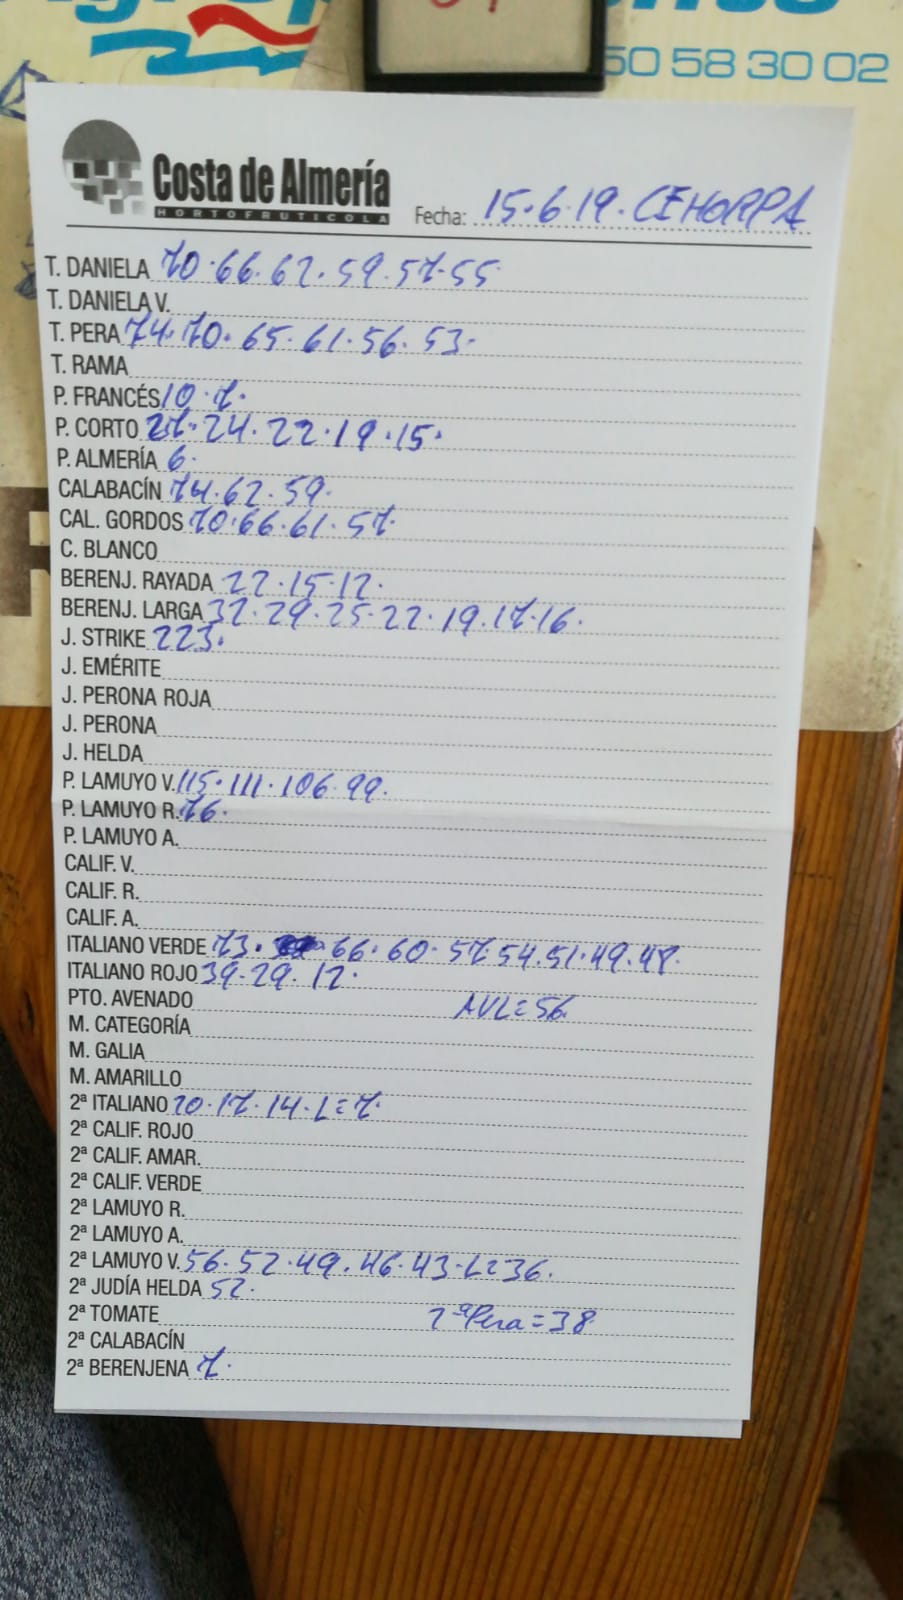 50 58 30 02
Costa de Almería
HORTOFRUTICOLA
Fecha: 15.6.19. CEHORPA
T. DANIELA 70.66.62.59.57.55
T. DANIELA V.
T. PERA 74.70.65.61.56.53.
T. RAMA
P. FRANCÉS 10.7.
P. CORTO 27.24.22.19.15.
P. ALMERÍA 6.
CALABACÍN 74.62.59.
CAL. GORDOS 70.66.61.57.
C. BLANCO
BERENJ. RAYADA 22.15.12.
BERENJ. LARGA 32.29.25.22.19.17.16.
J. STRIKE 223.
J. EMÉRITE
J. PERONA ROJA
J. PERONA
J. HELDA
P. LAMUYO V. 115.111.106.99.
P. LAMUYO R. 76.
P. LAMUYO A.
CALIF. V.
CALIF. R.
CALIF. A.
ITALIANO VERDE 73. 66.60.57.54.51.49.48.
ITALIANO ROJO 39.29.12.
PTO. AVENADO AVL=56.
M. CATEGORÍA
M. GALIA
M. AMARILLO
2ª ITALIANO 20.17.14.L=7.
2ª CALIF. ROJO
2ª CALIF. AMAR.
2ª CALIF. VERDE
2ª LAMUYO R.
2ª LAMUYO A.
2ª LAMUYO V. 56.52.49.46.43.L=36.
2ª JUDÍA HELDA 52.
2ª TOMATE 2ªPera=38
2ª CALABACÍN
2ª BERENJENA 7.